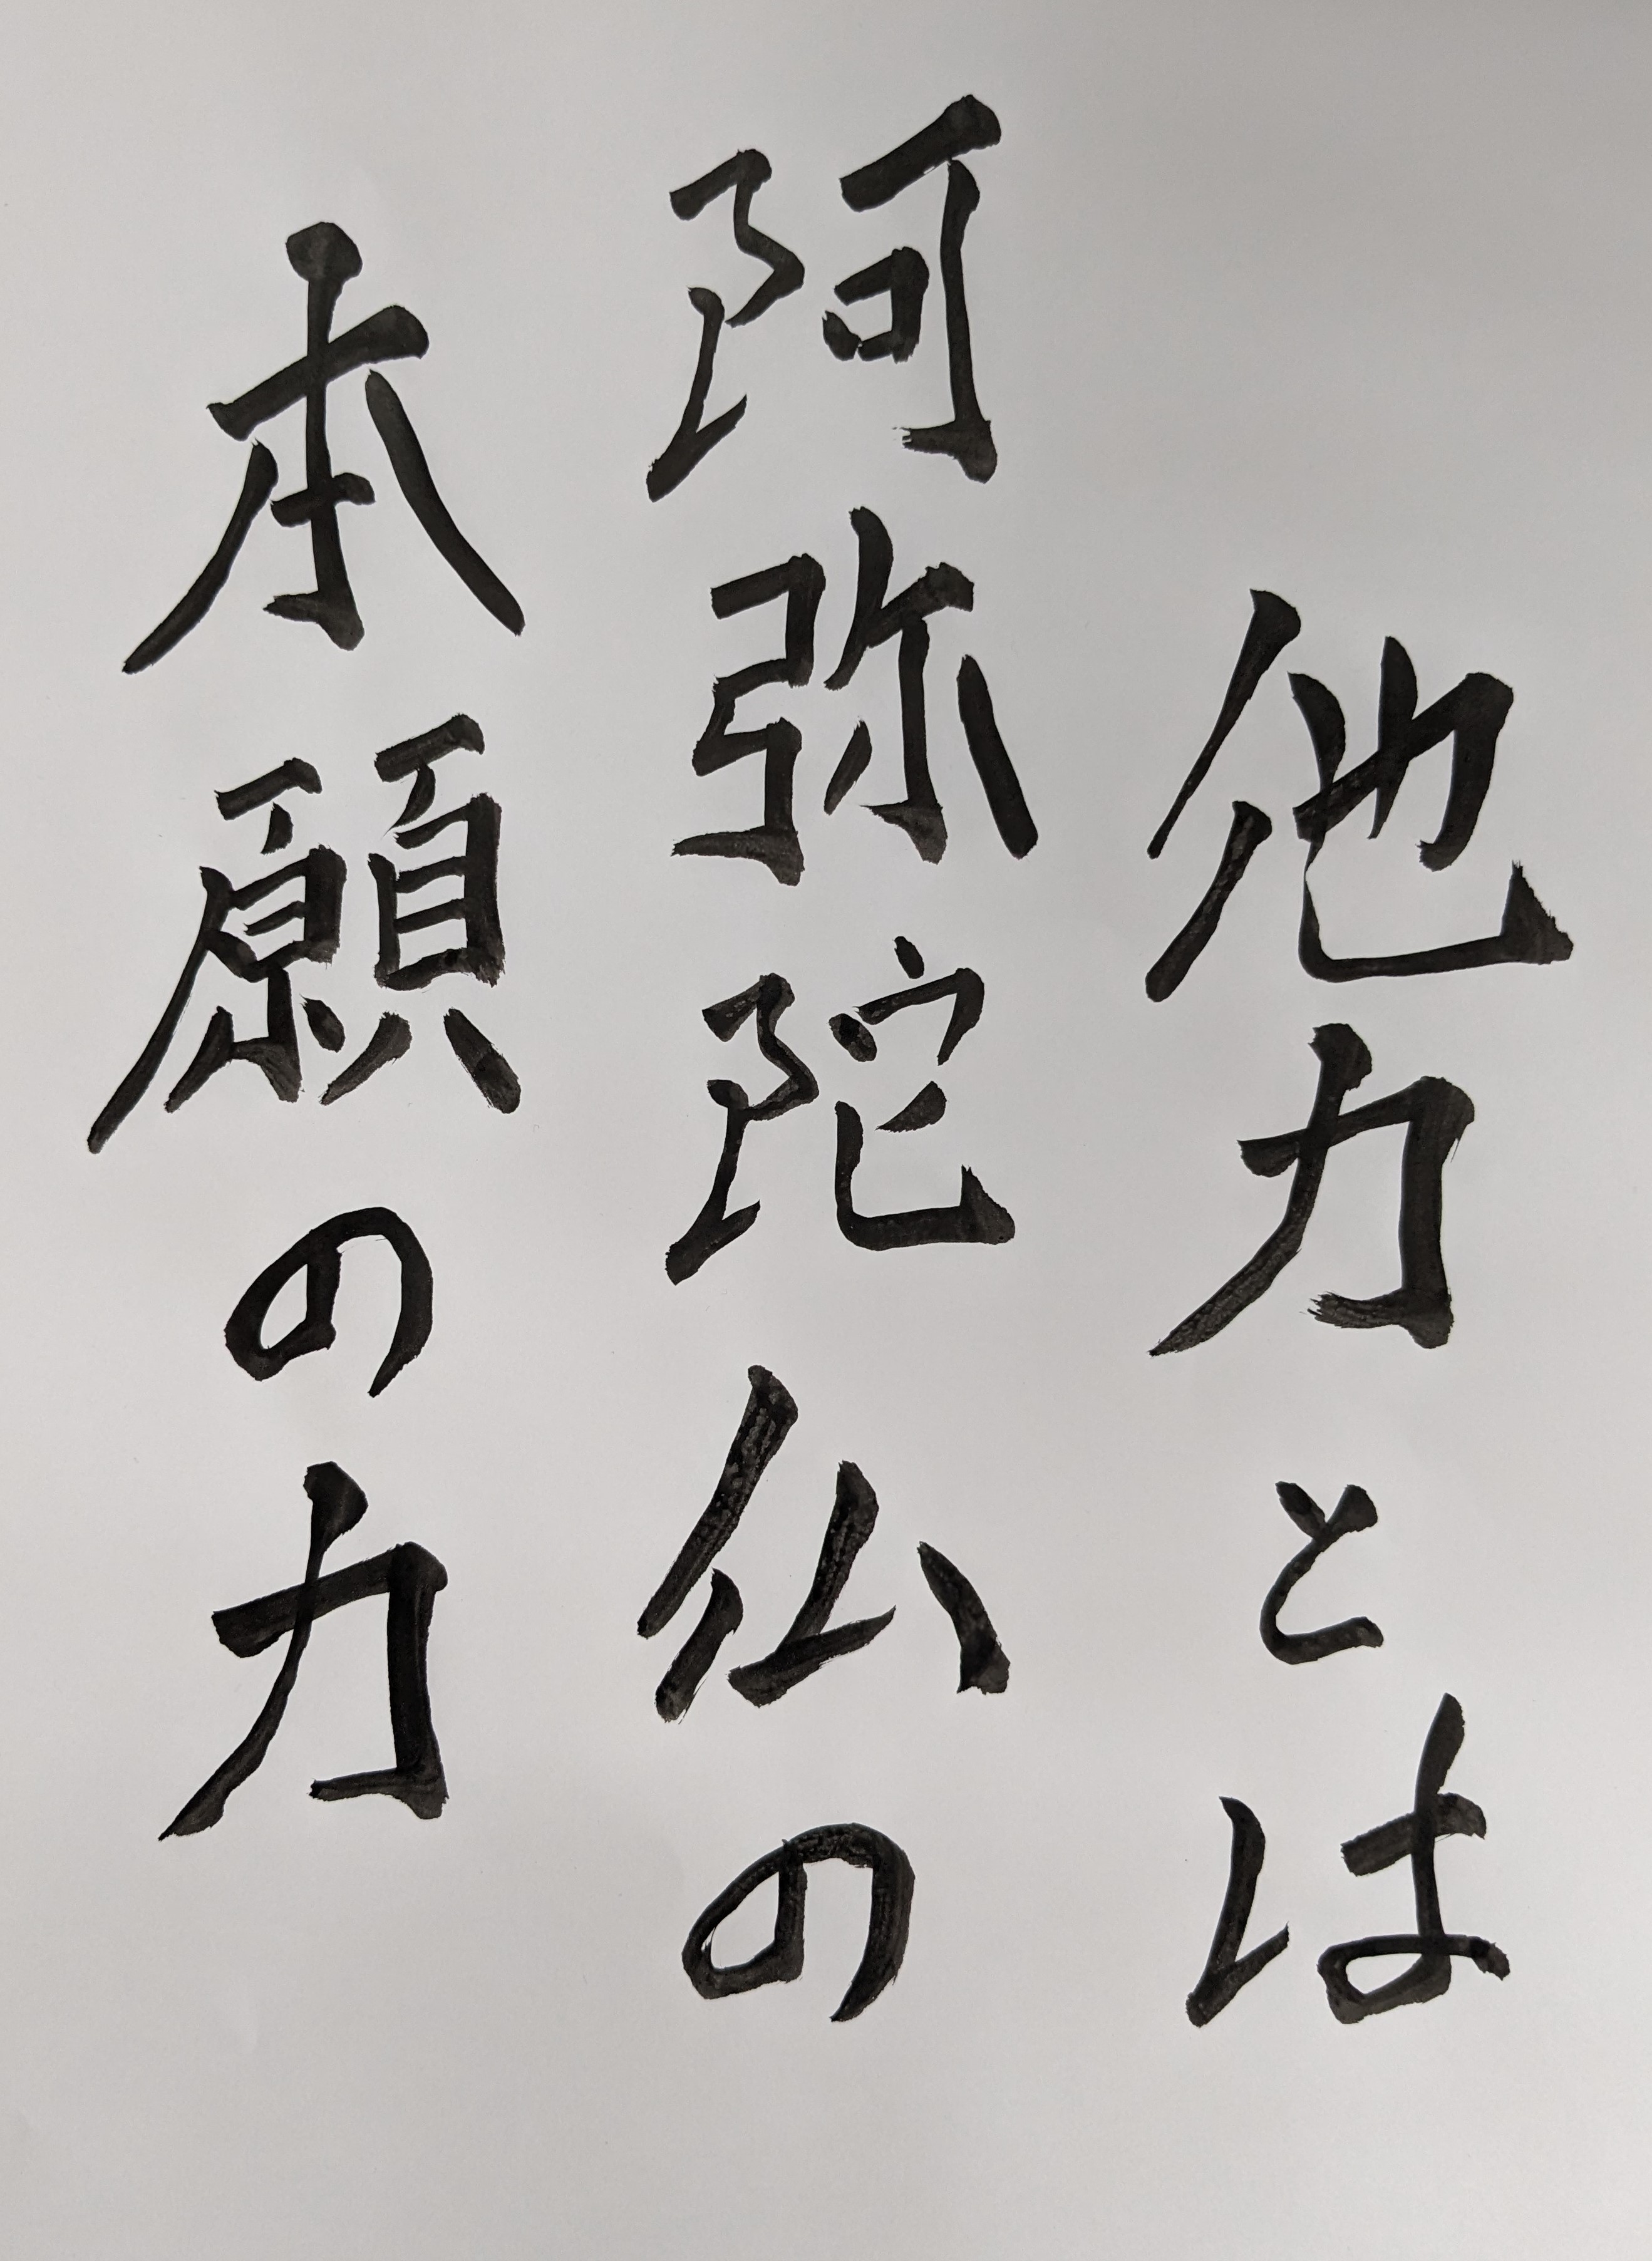 他力とは
阿弥陀仏の
本願の力